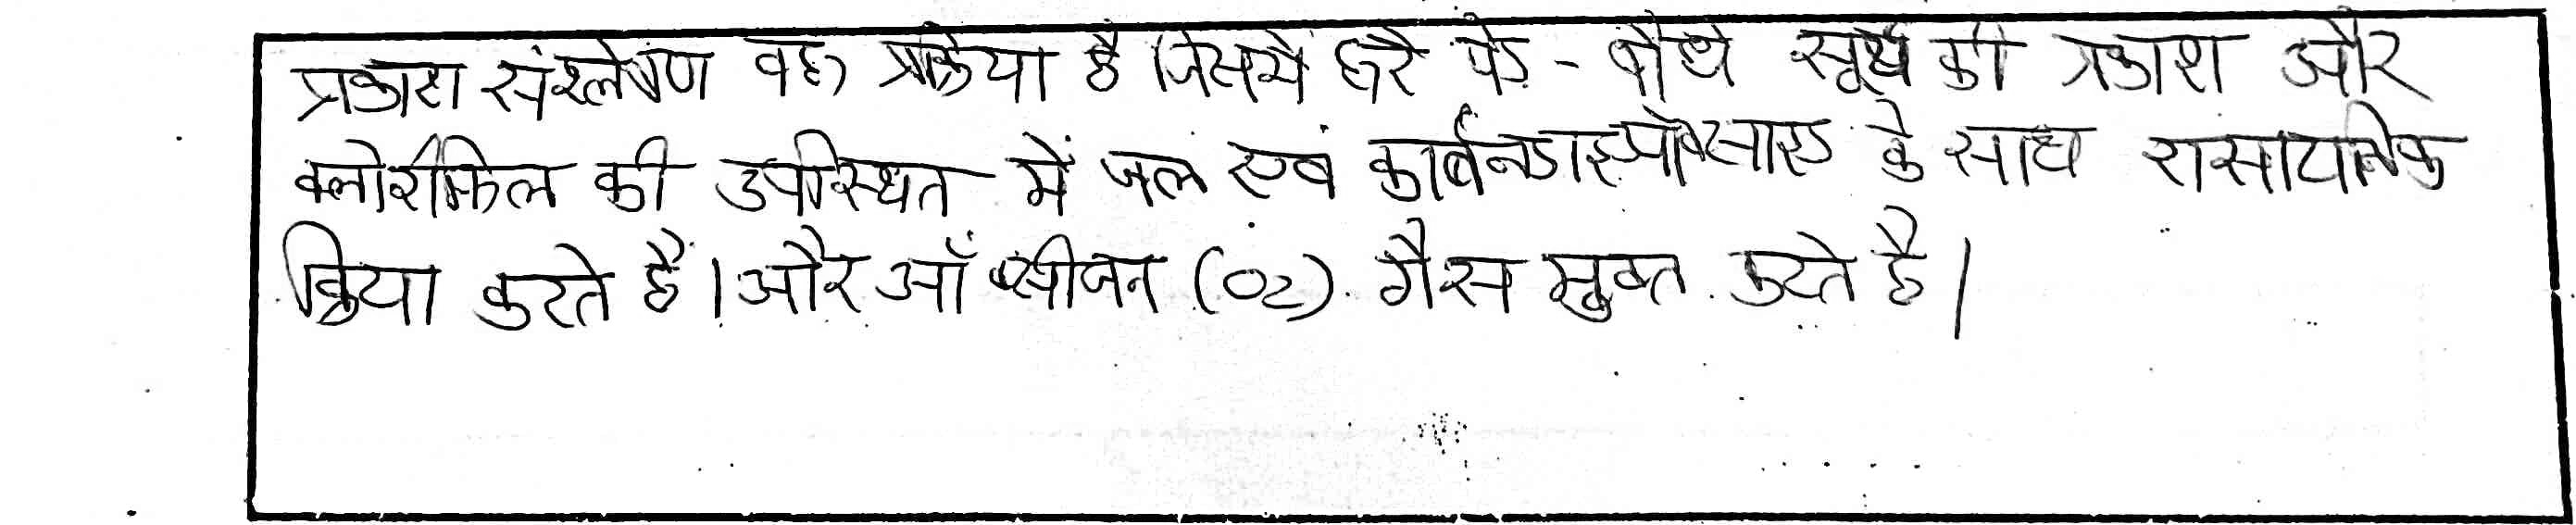 प्रकाश संश्लेषण वह प्रक्रिया है जिसमें हरे पेड़ - पौधे सूर्य की प्रकाश और
क्लोरोफिल की उपस्थित में जल एवं कार्बनडाइऑक्साइड के साथ रासायनिक
क्रिया करते हैं । और ऑक्सीजन (O2) गैस मुक्त करते है ।